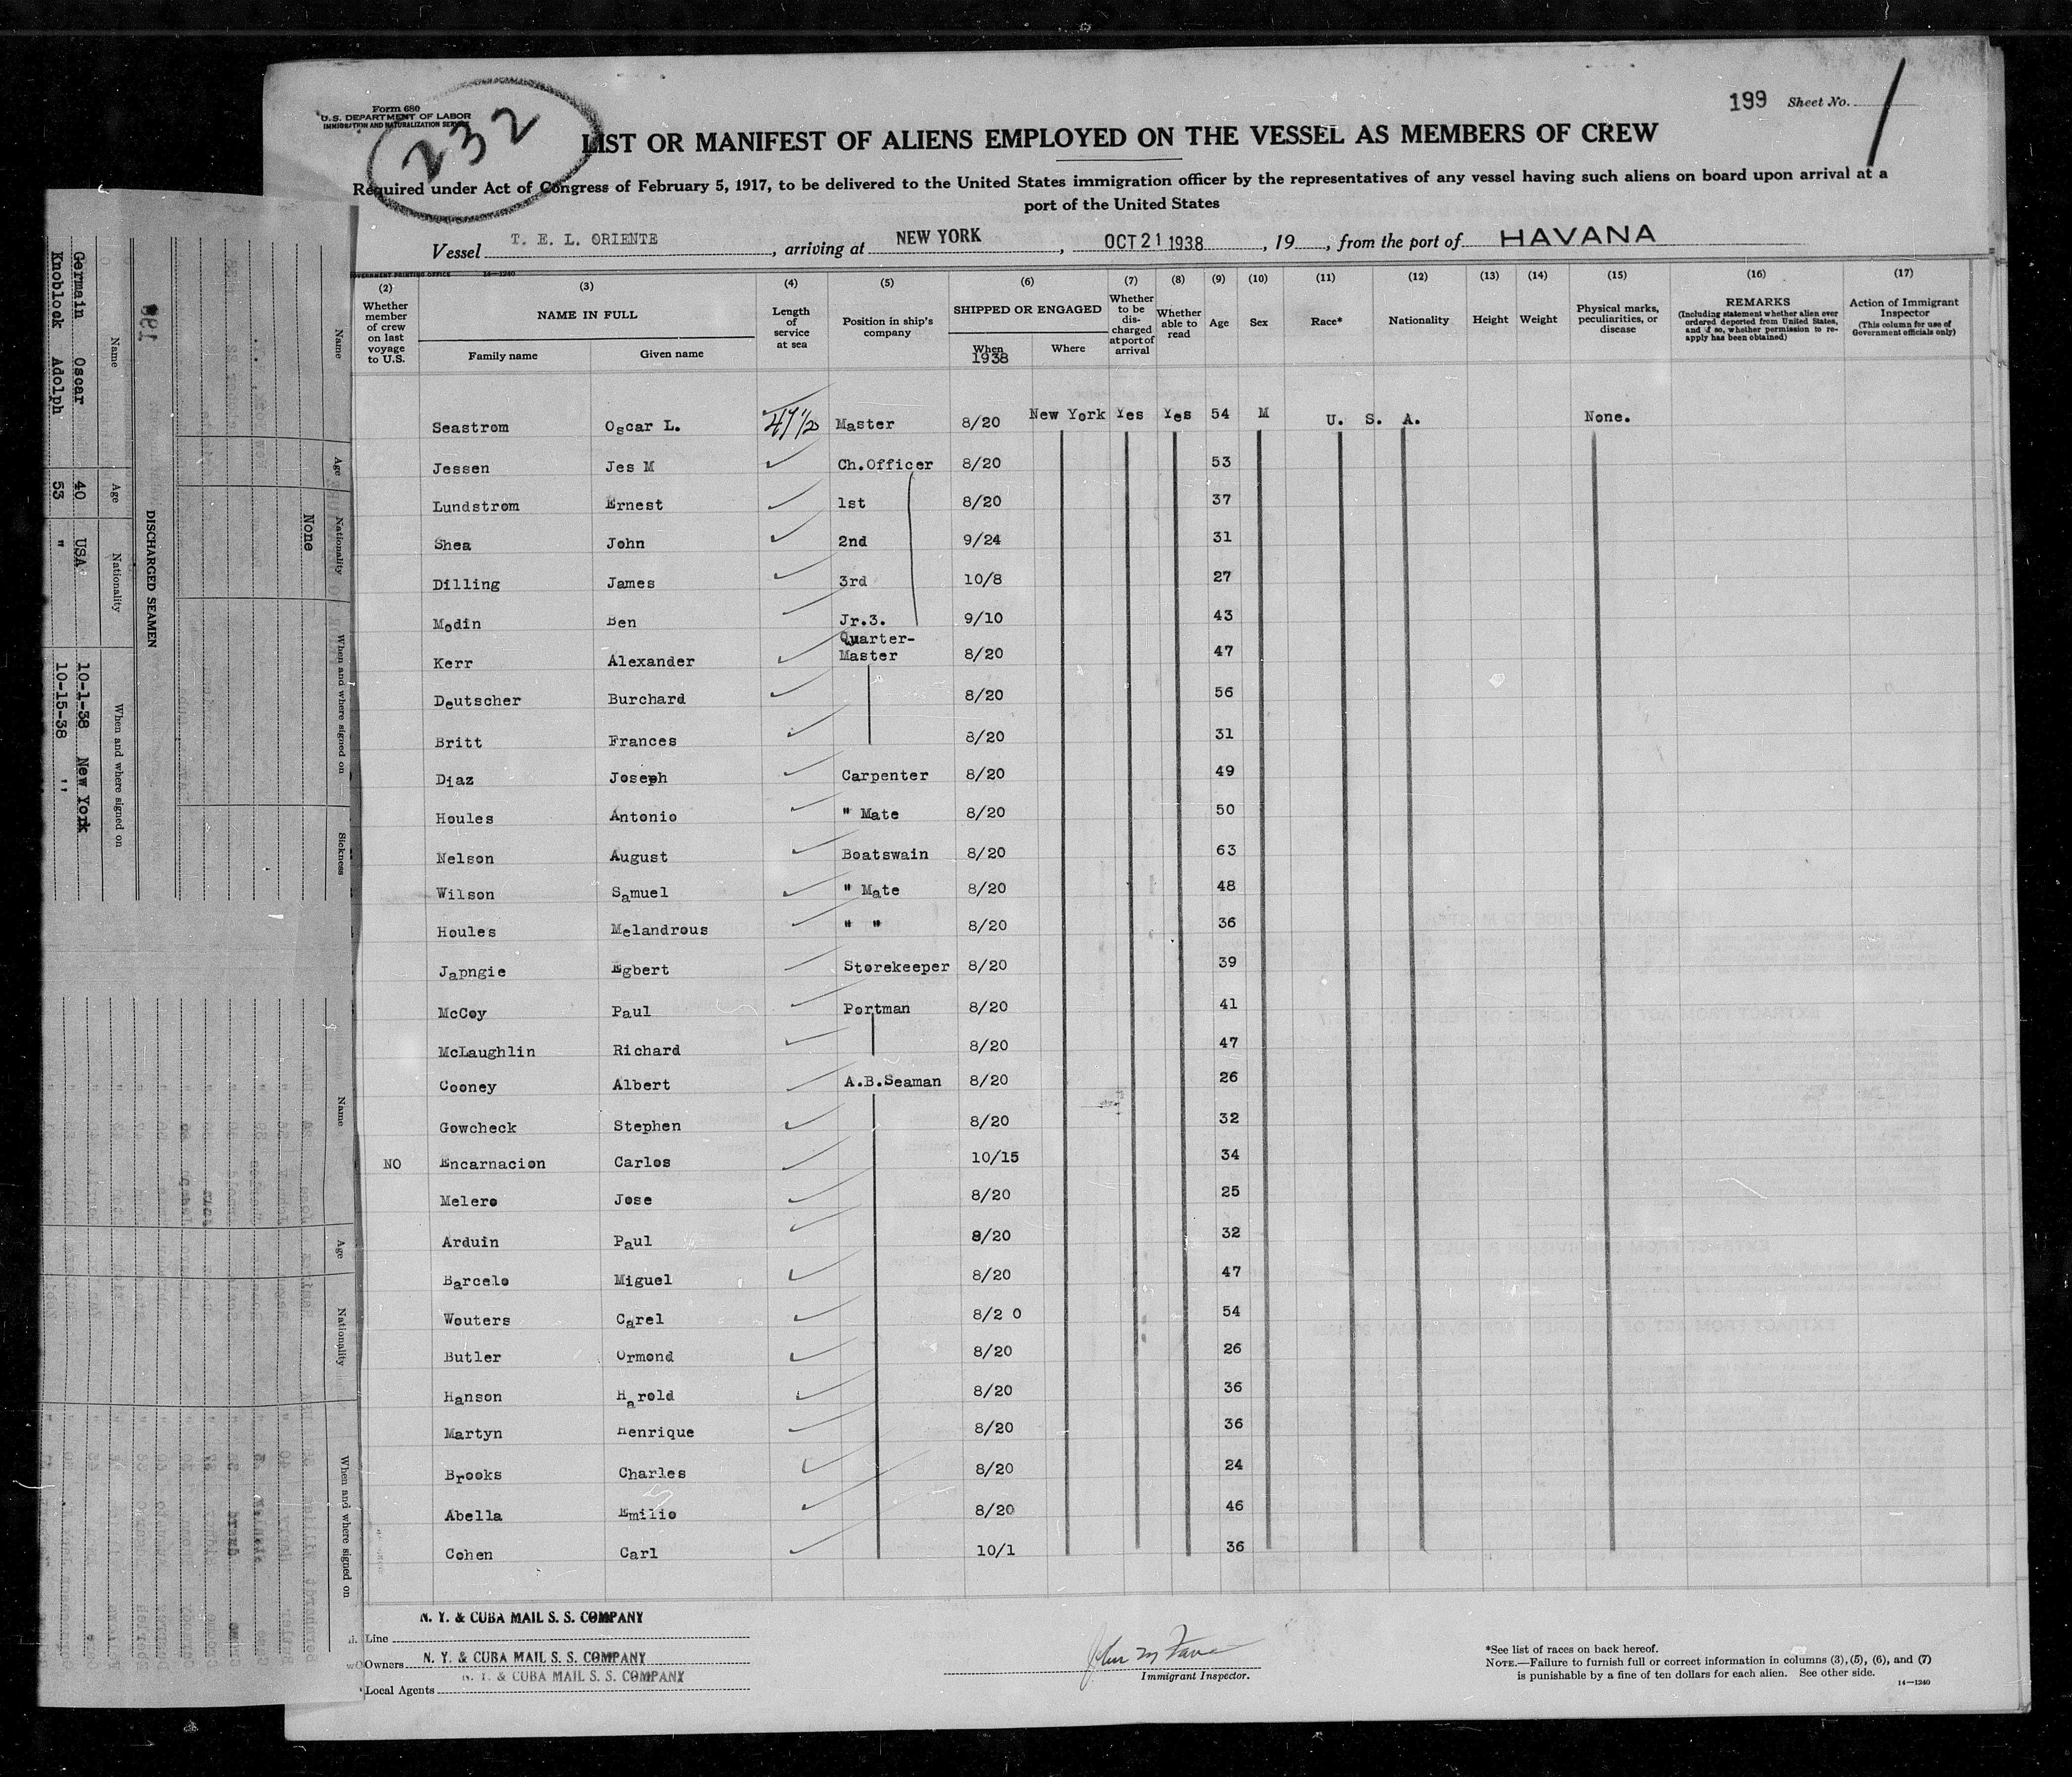 Form 680
U.S. DEPARTMENT OF LABOR
IMMIGRATION AND NATURALIZATION SERVICE
232
199 Sheet No. 1
LIST OR MANIFEST OF ALIENS EMPLOYED ON THE VESSEL AS MEMBERS OF CREW
Required under Act of Congress of February 5, 1917, to be delivered to the United States immigration officer by the representatives of any vessel having such aliens on board upon arrival at a
port of the United States
Vessel T. E. L. ORIENTE, arriving at NEW YORK, OCT 21 1938, 19, from the port of HAVANA
GOVERNMENT PRINTING OFFICE 14—1240
(2) (3) (4) (5) (6) (7) (8) (9) (10) (11) (12) (13) (14) (15) (16) (17)
Whether member of crew on last voyage to U.S.
NAME IN FULL
Family name Given name
Length of service at sea
Position in ship's company
SHIPPED OR ENGAGED
When 1938 Where
Whether to be discharged at port of arrival
Whether able to read
Age
Sex
Race*
Nationality
Height
Weight
Physical marks, peculiarities, or disease
REMARKS
(Including statement whether alien ever ordered deported from United States, and if so, whether permission to reapply has been obtained)
Action of Immigrant Inspector
(This column for use of Government officials only)
Seastrom Oscar L. Master 8/20 New York Yes Yes 54 M U. S. A. None.
Jessen Jes M Ch.Officer 8/20 53
Lundstrom Ernest 1st 8/20 37
Shea John 2nd 9/24 31
Dilling James 3rd 10/8 27
Modin Ben Jr.3. 9/10 43
Kerr Alexander Quarter-Master 8/20 47
Deutscher Burchard 8/20 56
Britt Frances 8/20 31
Diaz Joseph Carpenter 8/20 49
Houles Antonio " Mate 8/20 50
Nelson August Boatswain 8/20 63
Wilson Samuel " Mate 8/20 48
Houles Melandrous " " 8/20 36
Japngie Egbert Storekeeper 8/20 39
McCoy Paul Portman 8/20 41
McLaughlin Richard 8/20 47
Cooney Albert A.B.Seaman 8/20 26
Gowcheck Stephen 8/20 32
NO Encarnacion Carlos 10/15 34
Melero Jose 8/20 25
Arduin Paul 8/20 32
Barcelo Miguel 8/20 47
Wouters Carel 8/2 0 54
Butler Ormond 8/20 26
Hanson Harold 8/20 36
Martyn Henrique 8/20 36
Brooks Charles 8/20 24
Abella Emilio 8/20 46
Cohen Carl 10/1 36
Line N. Y. & CUBA MAIL S. S. COMPANY
Owners N. Y. & CUBA MAIL S. S. COMPANY
Local Agents N. Y. & CUBA MAIL S. S. COMPANY
Immigrant Inspector.
*See list of races on back hereof.
NOTE.—Failure to furnish full or correct information in columns (3), (5), (6), and (7)
is punishable by a fine of ten dollars for each alien. See other side.
14—1240
Name Age Nationality When and where signed on Sickness
None
DISCHARGED SEAMEN
Name Age Nationality When and where signed on
Germain Oscar 40 USA 10-1-38 New York
Knoblock Adolph 53 " 10-15-38 "
Name Age Nationality When and where signed on